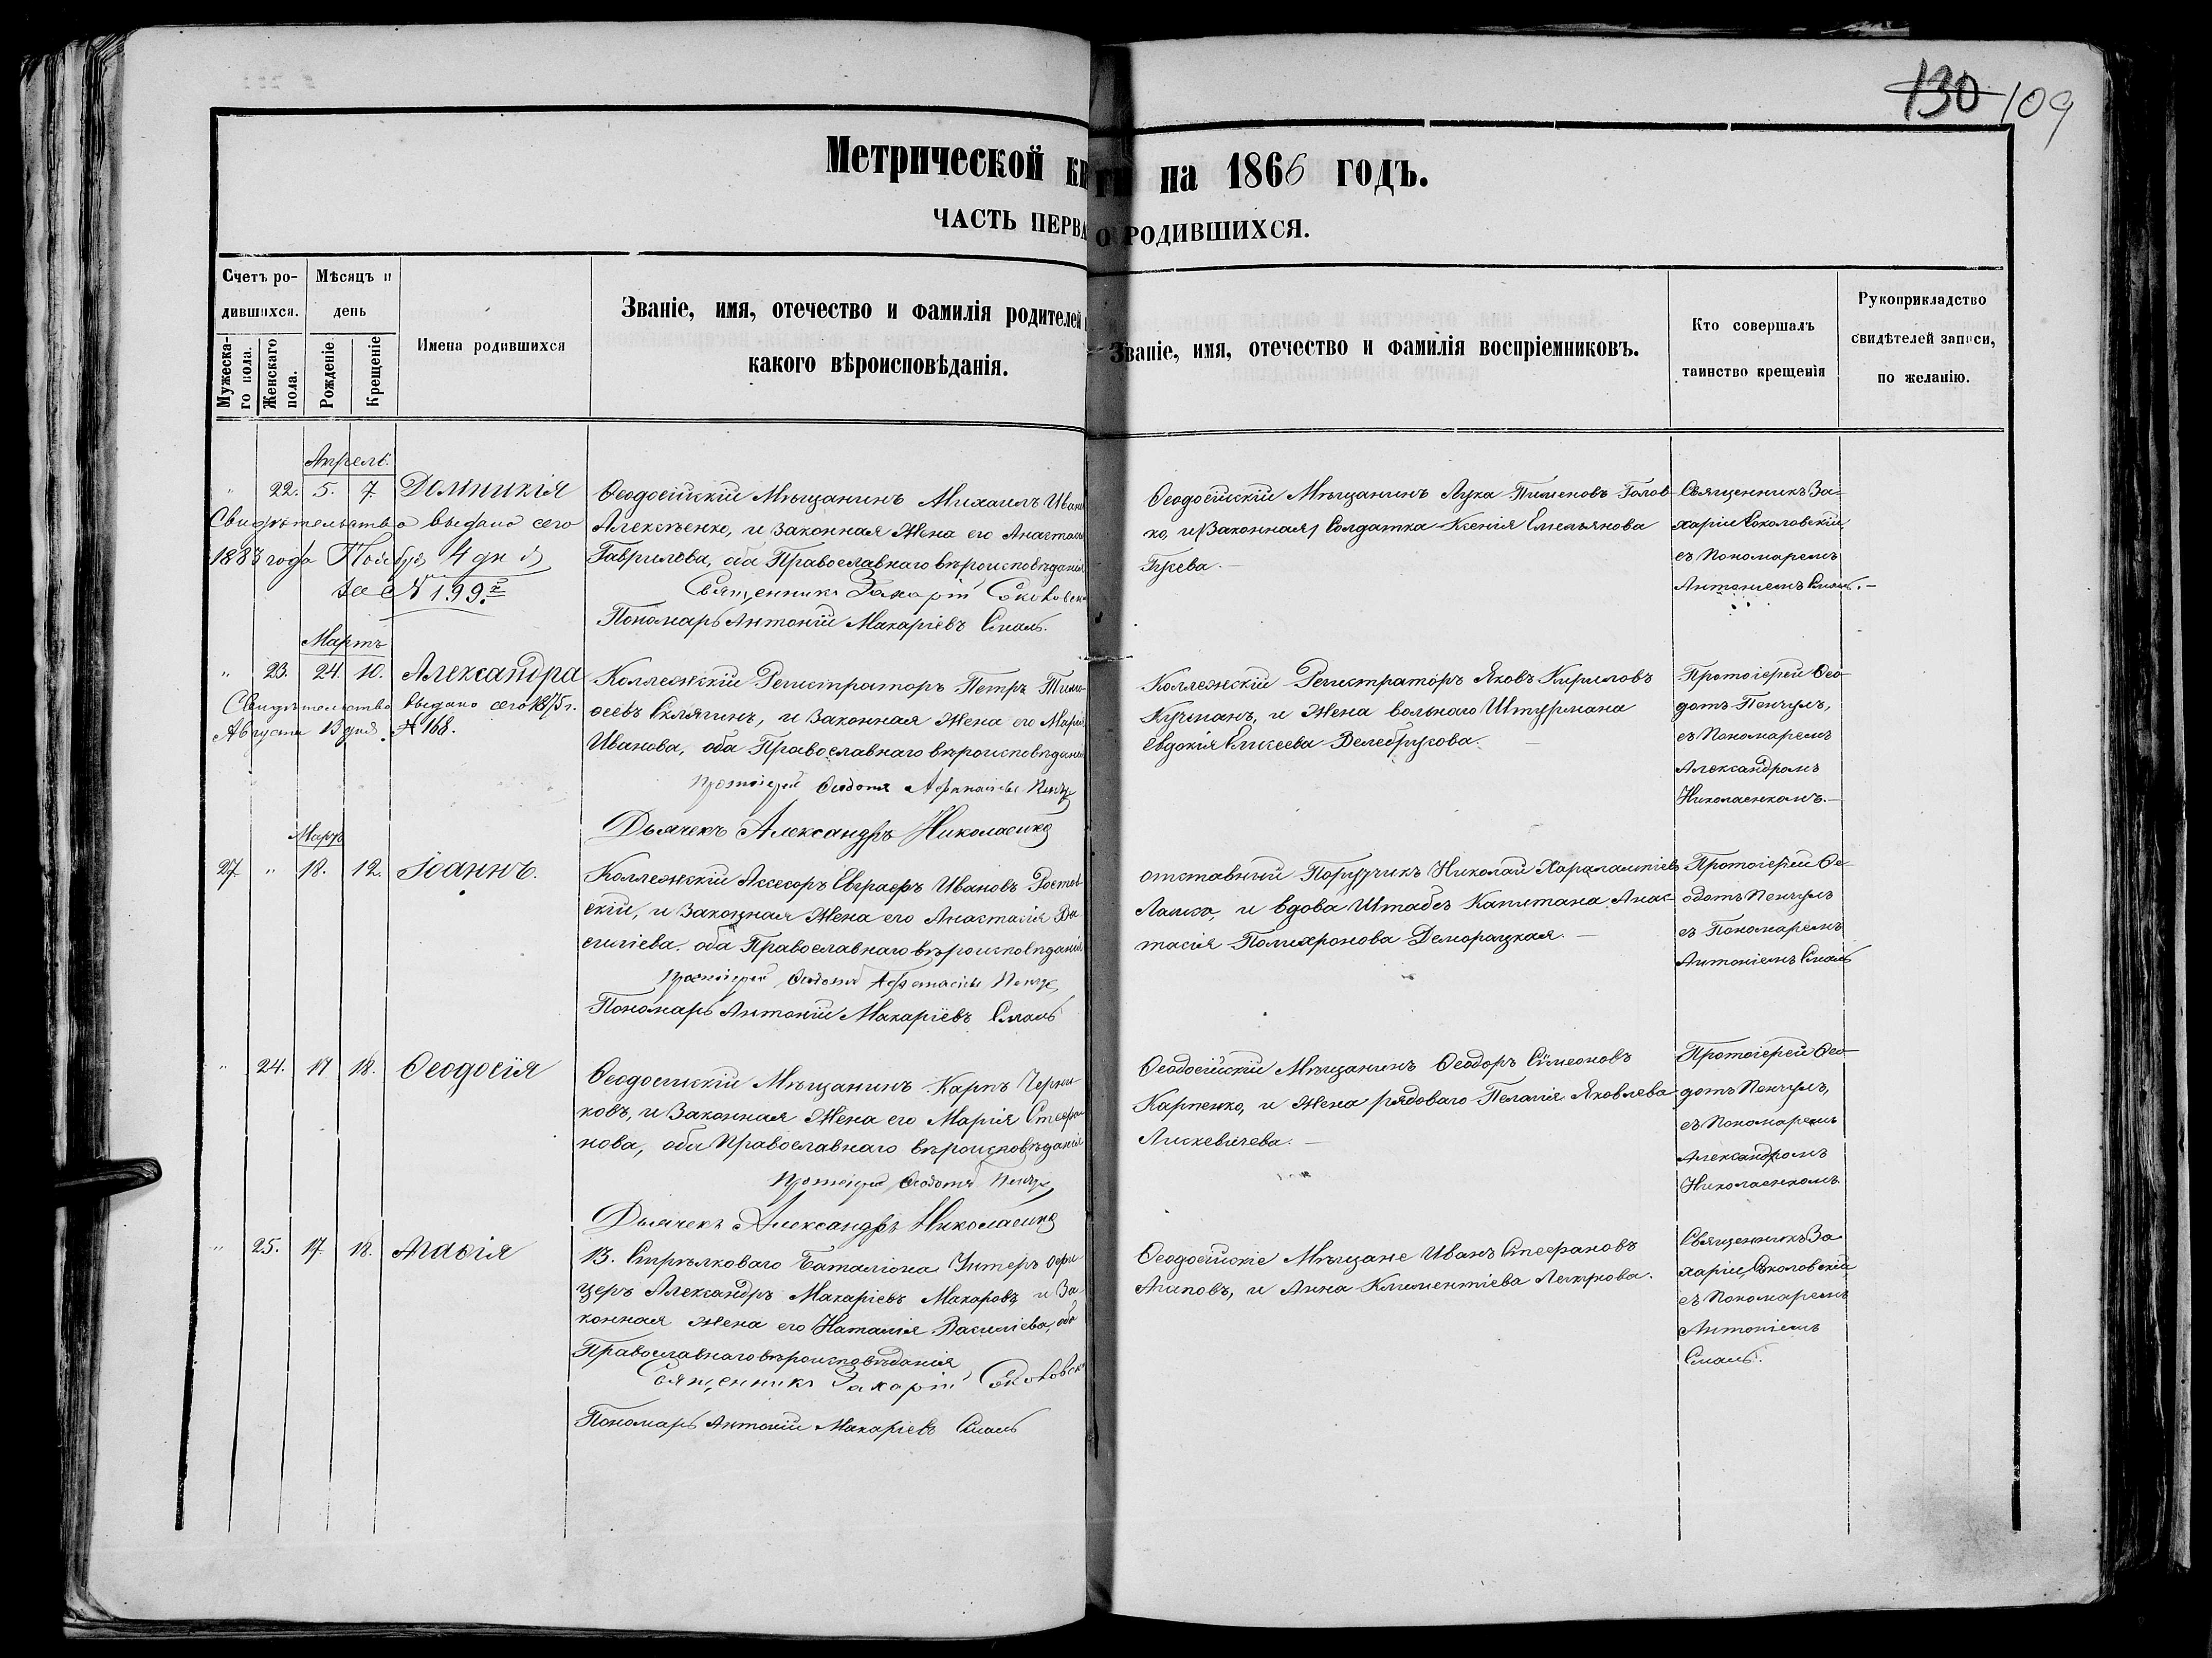 130 109
Метрической кн ги на 1866 годъ.
ЧАСТЬ ПЕРВА О РОДИВШИХСЯ.
Счетъ ро-
дившихся.
Мужеска-
го пола.
Женскаго
пола.
Мѣсяцъ и
день
Рожденіе.
Крещеніе
Имена родившихся
Званіе, имя, отечество и фамилія родителей
какого вѣроисповѣданія.
Званіе, имя, отечество и фамилія воспріемниковъ.
Кто совершалъ
таинство крещенія
Рукоприкладство
свидѣтелей записи,
по желанію.
Апрель.
" 22. 5. 7. Домникія
Свидѣтельство выдано сего
1883 года 4 дня
за № 199.
Ѳеодосійскій Мѣщанинъ Михаилъ Иван
Алексѣенко, и законная Жена его Анастас
Гаврилова, оба Православнаго вѣроисповѣданія
Священникъ Захарій Соколовск
Пономарь Антоній Макаріевъ Смаль.
Ѳеодосійскій Мѣщанинъ Лука Пименовъ Голов-
ко, и законная Солдатка Ксенія Емельянова
Гусева.
Священникъ За-
харій Соколовскій
съ Пономаремъ
Антоніемъ Смаль.
Мартъ
" 23. 24. 10. Александра
Свидѣтельство выдано сего 1875 г.
Августа 13 дня № 168.
Коллежскій Регистраторъ Петръ Тимо-
ѳеевъ Склягинъ, и законная Жена его Марія
Иванова, оба Православнаго вѣроисповѣданія
Протоіерей Ѳеодотъ Афанасіевъ Пенчулъ
Дьячекъ Александръ Николаенко
Коллежскій Регистраторъ Яковъ Кириловъ
Кушманъ, и Жена вольнаго Штурмана
Евдокія Елисеева Велебрукова.
Протоіерей Ѳео-
дотъ Пенчулъ,
съ Пономаремъ
Александромъ
Николаенкомъ.
Мартъ
27. " 18. 12. Іоаннъ.
Коллежскій Ассесоръ Евграфъ Ивановъ Ростов
скій, и законная Жена его Анастасія Ва
силіева. оба Православнаго вѣроисповѣданія
Протоіерей Ѳеодотъ Афанасіевъ Пенчулъ
Пономарь Антоній Макаріевъ Смаль
отставный Поручикъ Николай Харалампіевъ
Лашко, и вдова Штабсъ Капитана Анас-
тасія Полихронова Деморацкая.
Протоіерей Ѳе-
одотъ Пенчулъ
съ Пономаремъ
Антоніемъ Смаль
" 24. 17. 18. Ѳеодосія
Ѳеодосійскій Мѣщанинъ Карпъ Черни
ковъ, и законная Жена его Марія Стефа
нова, оба Православнаго вѣроисповѣданія
Протоіерей Ѳеодотъ Пенчулъ
Дьячекъ Александръ Николаенко
Ѳеодосійскій Мѣщанинъ Ѳеодоръ Сѵмеоновъ
Карпенко, и Жена рядоваго Пелагія Яковлева
Лискевичева.
Протоіерей Ѳео-
дотъ Пенчулъ,
съ Пономаремъ
Александромъ
Николаенкомъ
" 25. 17. 18. Марія
13. Стрѣлковаго Баталіона Унтеръ офи
церъ Александръ Макаріевъ Макаровъ и за-
конная Жена его Наталія Василіева, оба
Православнаго вѣроисповѣданія
Священникъ Захарій Соколовск
Пономарь Антоній Макаріевъ Смаль
Ѳеодосійскіе Мѣщане Иванъ Стефановъ
Агиповъ, и Анна Климентіева Петрова.
Священникъ За
харій Соколовскій
съ Пономаремъ
Антоніемъ
Смаль.